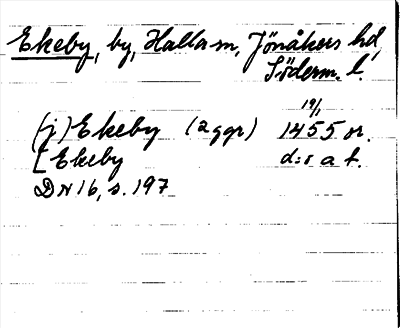 Ekeby, by, Halla sn, Jönåkers hd,
Söderm. l.
19/1
(j) Ekeby (2 ggr) 1455 or.
[Ekeby d:o a t.
DN 16, s. 197